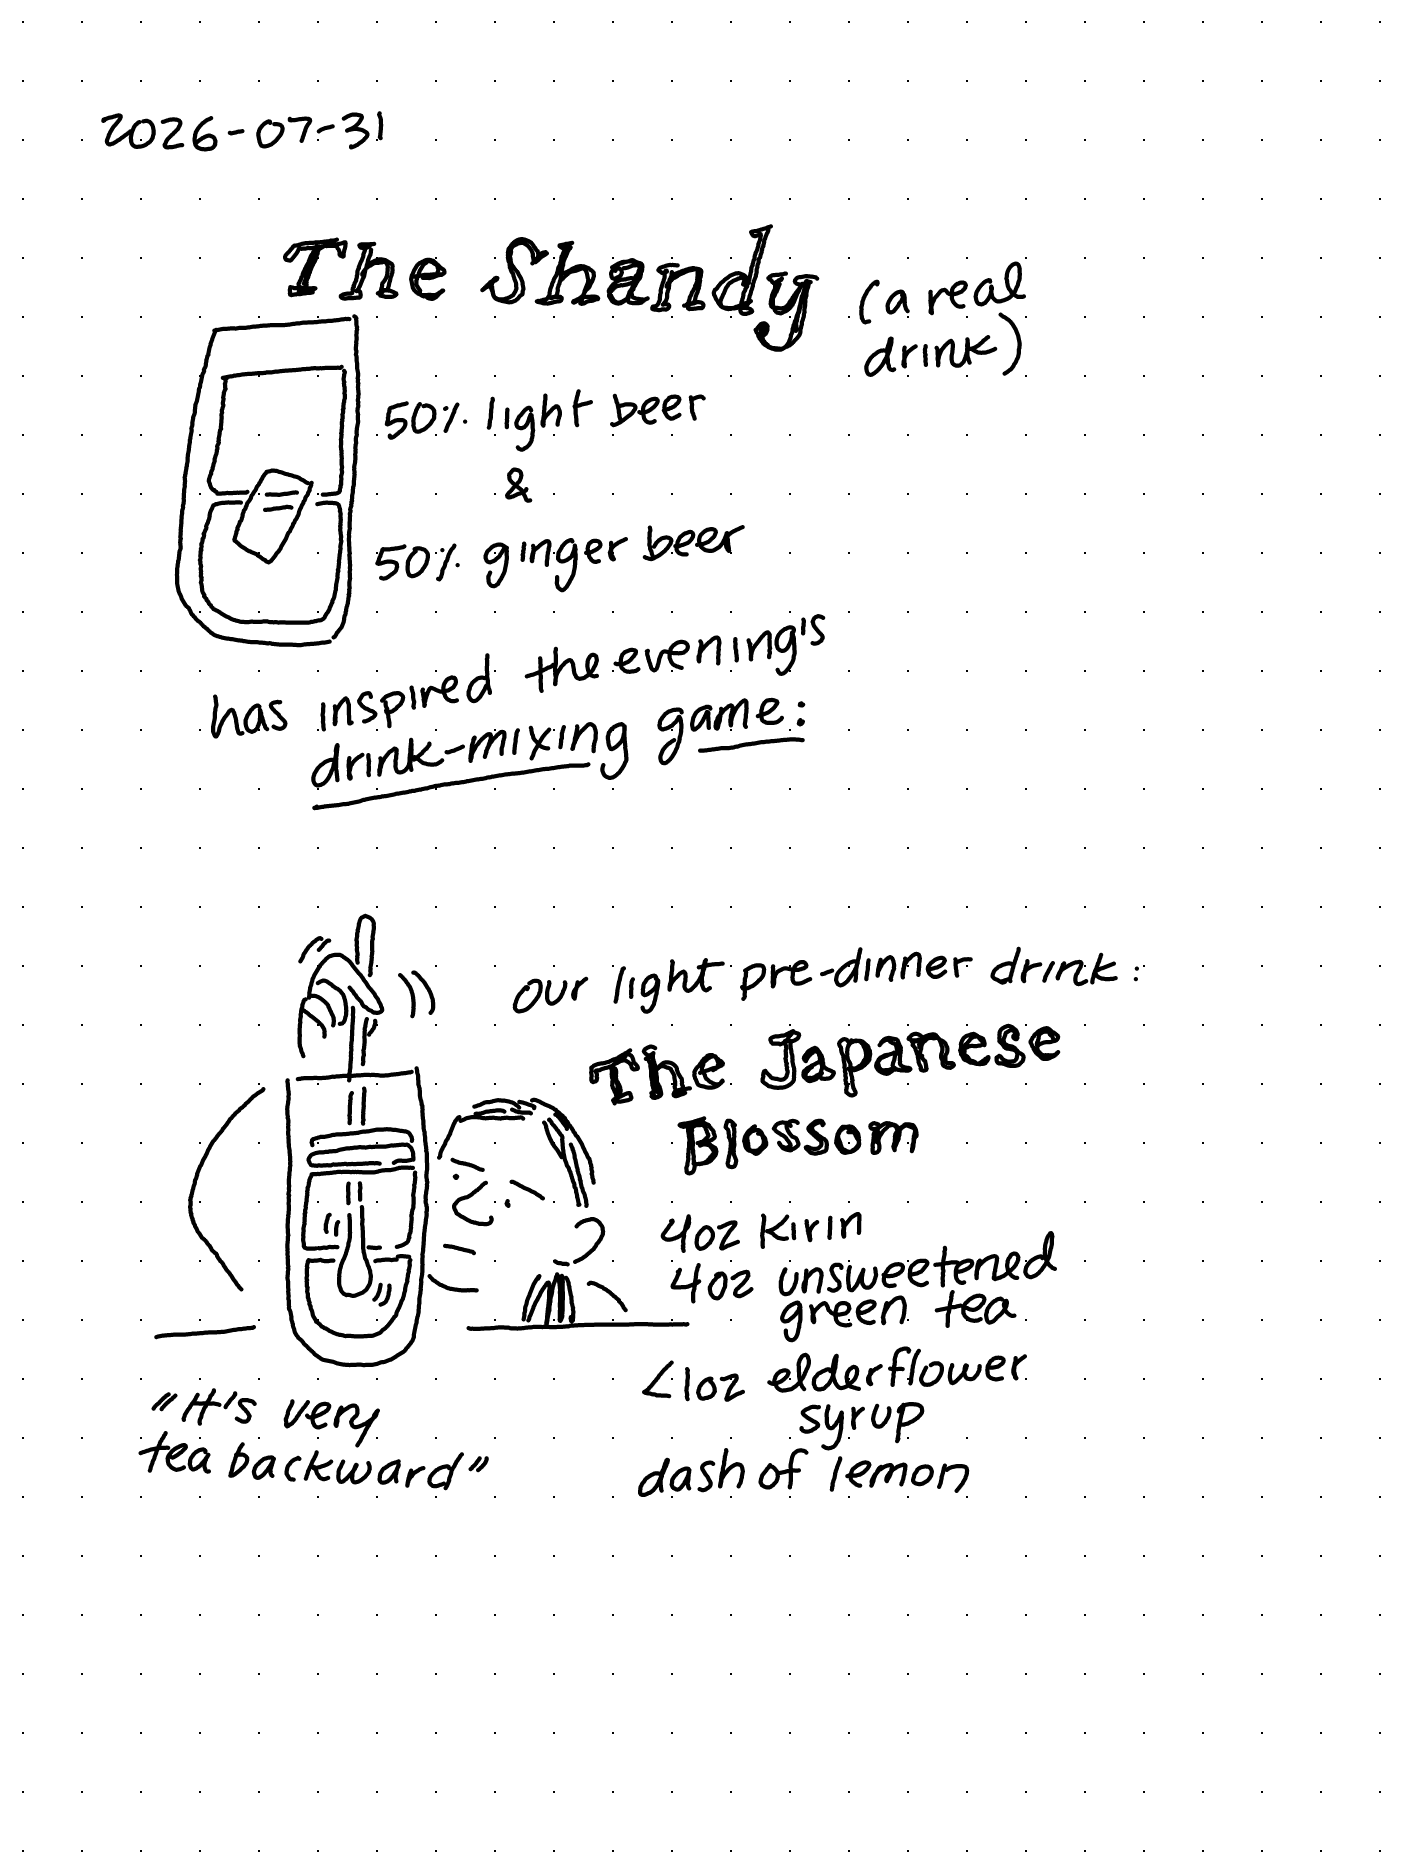 2026-07-31
The Shandy (a real
drink)
50% light beer
&
50% ginger beer
has inspired the evening's
drink-mixing game:
our light pre-dinner drink:
The Japanese
Blossom
4oz Kirin
4oz unsweetened
green tea
<1oz elderflower
syrup
dash of lemon
"It's very
tea backward"